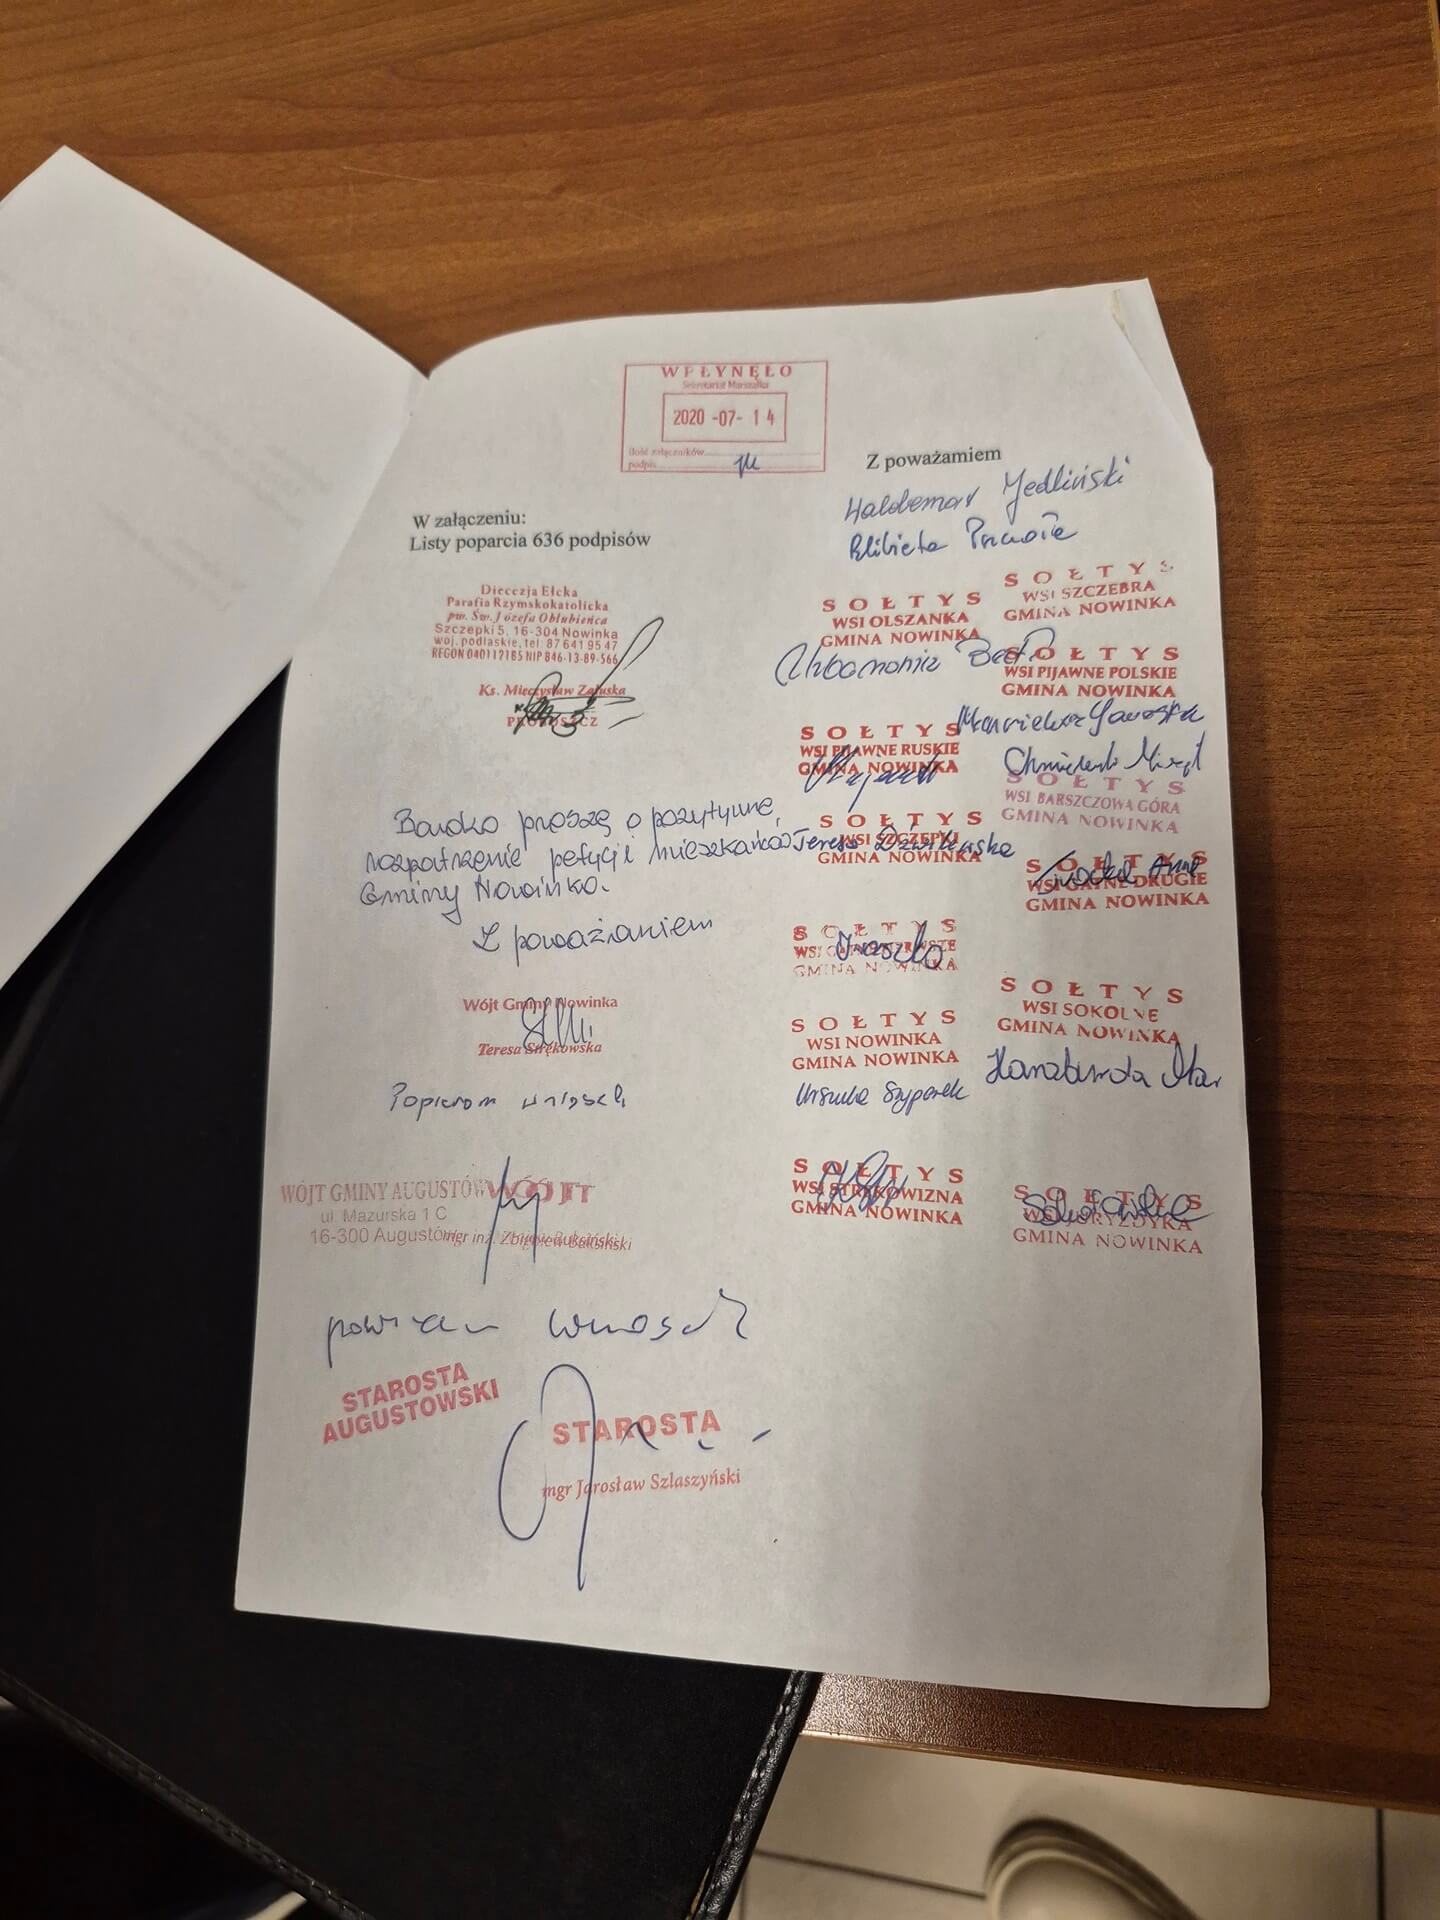 WPŁYNĘŁO
Sekretariat Marszałka
2020 -07- 14
Ilość załączników
podpis
Z poważamiem
Waldemar Jedliński
Elżbieta
W załączeniu:
Listy poparcia 636 podpisów
Diecezja Ełcka
Parafia Rzymskokatolicka
pw. Św. Józefa Oblubieńca
Szczepki 5, 16-304 Nowinka
woj. podlaskie, tel. 87 641 95 47
REGON 040112185 NIP 846-13-89-566
Ks. Mieczysław Załuska
PROBOSZCZ
SOŁTYS
WSI OLSZANKA
GMINA NOWINKA
SOŁTYS
WSI SZCZEBRA
GMINA NOWINKA
SOŁTYS
WSI PIJAWNE POLSKIE
GMINA NOWINKA
SOŁTYS
WSI PIJAWNE RUSKIE
GMINA NOWINKA
SOŁTYS
WSI BARSZCZOWA GÓRA
GMINA NOWINKA
SOŁTYS
WSI SZCZEPKI
GMINA NOWINKA
Teresa
SOŁTYS
WSI GATNE DRUGIE
GMINA NOWINKA
Anna
SOŁTYS
WSI
GMINA NOWINKA
SOŁTYS
WSI SOKOLNE
GMINA NOWINKA
SOŁTYS
WSI NOWINKA
GMINA NOWINKA
Urszula Szyperek
SOŁTYS
WSI STRĘKOWIZNA
GMINA NOWINKA
SOŁTYS
WSI
GMINA NOWINKA
Bardzo proszę o pozytywne
rozpatrzenie petycji mieszkańców
Gminy Nowinka.
Z poważaniem
Wójt Gminy Nowinka
Teresa Strękowska
Popieram wniosek
WÓJT GMINY AUGUSTÓW
ul. Mazurska 1 C
16-300 Augustów
WÓJT
mgr inż. Zbigniew Buksiński
wniosek
STAROSTA
AUGUSTOWSKI
STAROSTA
mgr Jarosław Szlaszyński